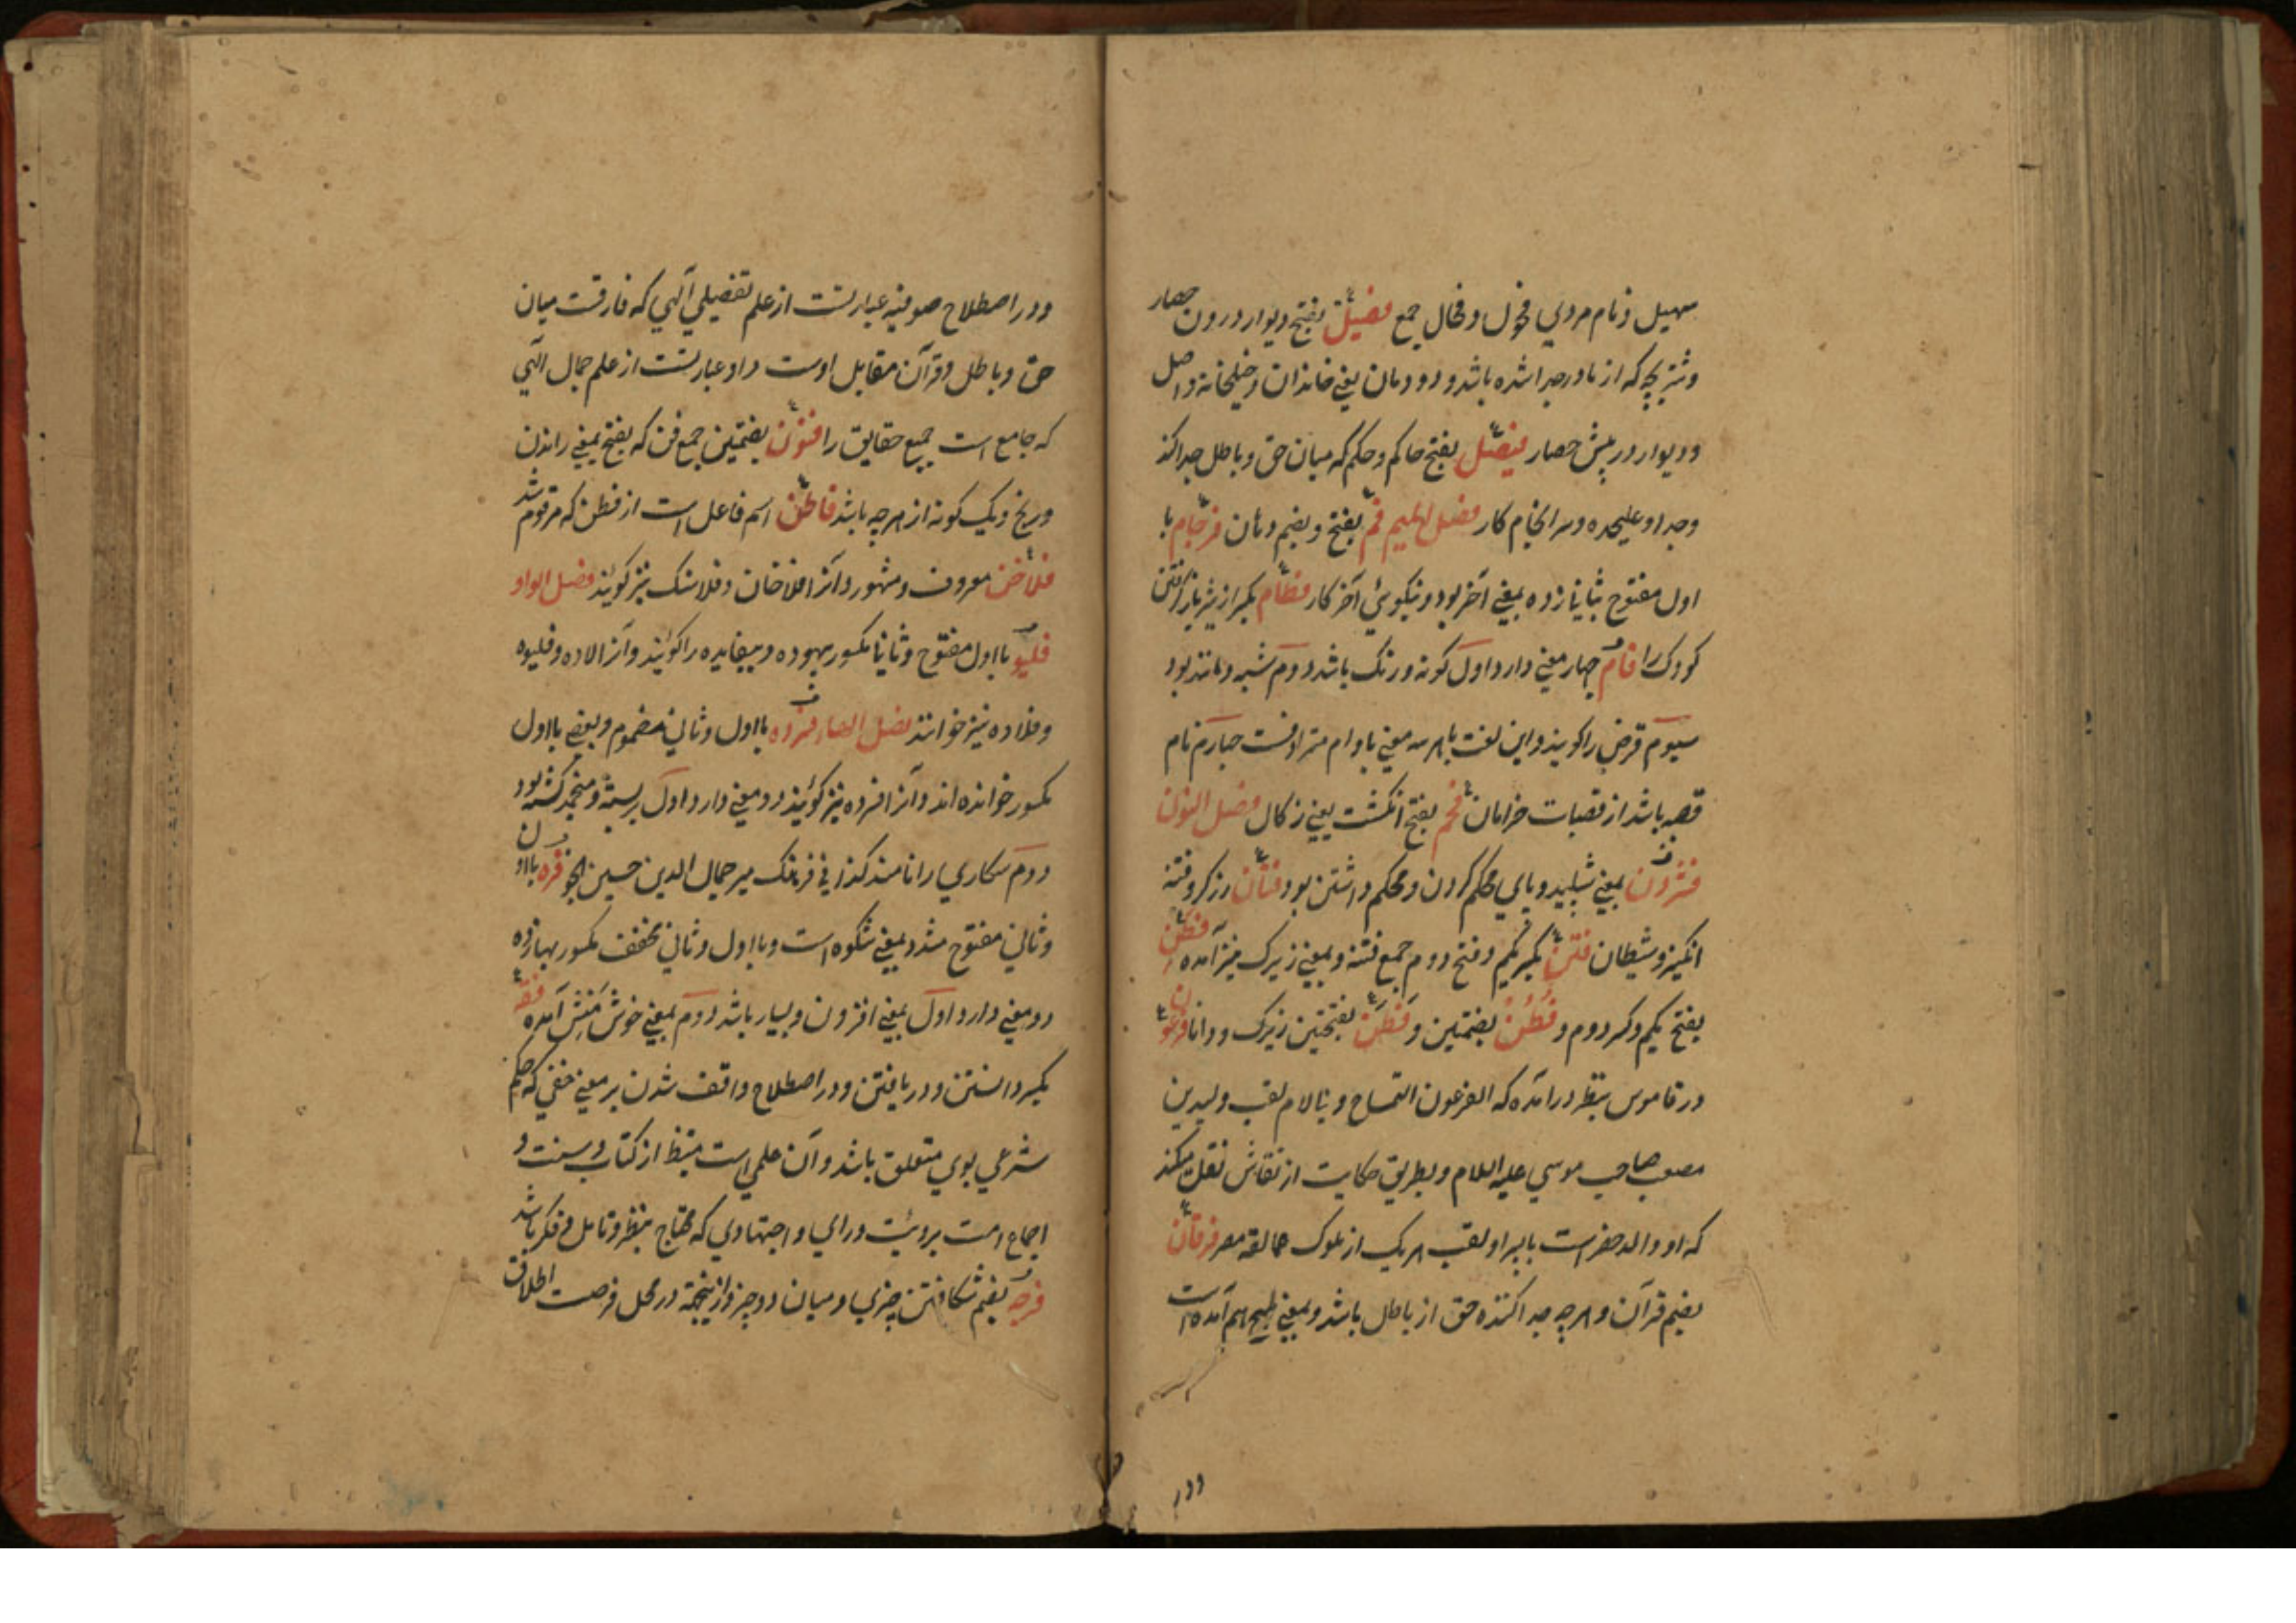 سهیل و نام مردی فحول و فحال جمع فصیل بفتح دیوار درون حصار
و شتر بچه که از مادر جدا شده باشد و دودمان یعنی خاندان و خیلخانه و اصل
و دیوار در پیش حصار فیصل بفتح حاکم و حکم که میان حق و باطل جدا کند
و جدا و علیحده و سرانجام کار فصل المیم فم بفتح و بضم دهان فرجام با
اول مفتوح بثانی زده بمعنی آخر بود و نیکویی آخر کار فطام بکسر از شیر باز گرفتن
کودک را فام چهار معنی دارد اول کونه و رنک باشد دوم شبه و مانند بود
سیوم قرض را کویند و این لغت باهر سه معنی با وام مترادفست چهارم نام
قصبه باشد از قصبات خراسان فحم بفتح انکشت یعنی زکال فصل النون
بمعنی پای محکم کردن و محکم داشتن بود فتان زرکر و فتنه
انکیز و شیطان فتن بکسر یکم و فتح دوم جمع فتنه و بمعنی زیرک نیز آمده فطن
بفتح یکم و کسر دوم و فطن بضمتین و فطن بفتحتین زیرک و دانا فرعون
در قاموس بنظر درآمده که الفرعون التمساح و بالام لقب ولید بن
مصعب صاحب موسی علیه السلام و بطریق حکایت از نقاش نقل میکند
که او والد خضر است یا پسر او لقب هر یک از ملوک عمالقه مصر فرقان
بضم قرآن و هرچه جدا کننده حق از باطل باشد و بمعنی هم آمده است
ودر
ودر اصطلاح صوفیه عبارتست از علم تفصیلی آلهی که فارقست میان
حق و باطل و قرآن مقابل اوست و او عبارتست از علم جمال الهی
که جامع است جمیع حقایق را فنون بضمتین جمع فن که بفتح بمعنی راندن
و رنج و یک کونه از هرچه باشد فاطن اسم فاعل است از فطن که مرقوم شد
فلاخن معروف و مشهور و آنرا فلاخان و فلاسنک نیز کویند فصل الواو
فلیو با اول مفتوح و ثانیا مکسور بیهوده و بیفایده را کویند و آنرا لاده و فلیوه
و فلاده نیز خوانند فصل الهاء با اول و ثانی مضموم و بعضی با اول
مکسور خوانده اند و آنرا افسرده نیز کویند دو معنی دارد اول بسته و منجمد کشته بود
دوم سکاری را نامند کذا فی فرهنک میر جمال الدین حسین انجو فره با او
و ثانی مفتوح مشدد بمعنی شکوه است و با اول و ثانی مخفف مکسور بها زده
دو معنی دارد اول بمعنی افزون و بسیار باشد دوم بمعنی خوش منش آمده فقه
بکسر دانستن و دریافتن و در اصطلاح واقف شدن بر معنی خفی که حکم
شرعی بوی متعلق باشد و آن علمی است مستنبط از کتاب و سنت و
اجماع امت برویت و رای و اجتهادی که محتاج بنظر و تامل و فکر باشد
فرجه بضم شکافتن چیزی و میان دو چیز و از ینجهة در محل فرصت اطلاق